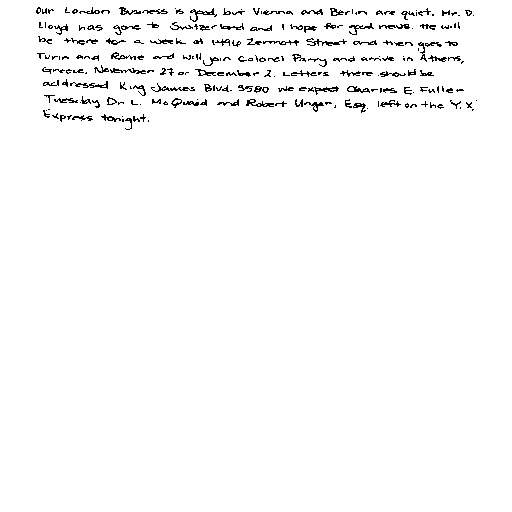 Our London Business is good, but Vienna and Berlin are quiet. Mr. D.
Lloyd has gone to Switzerland and I hope for good news. He will
be there for a week at 1496 Zermott Street and then goes to
Turin and Rome and will join Colonel Parry and arrive in Athens,
Greece, November 27 or December 2. Letters there should be
addressed King James Blvd. 3580 We expect Charles E. Fuller
Tuesday Dr. L. McQuaid and Robert Unger, Esq. left on the Y.X.
Express tonight.